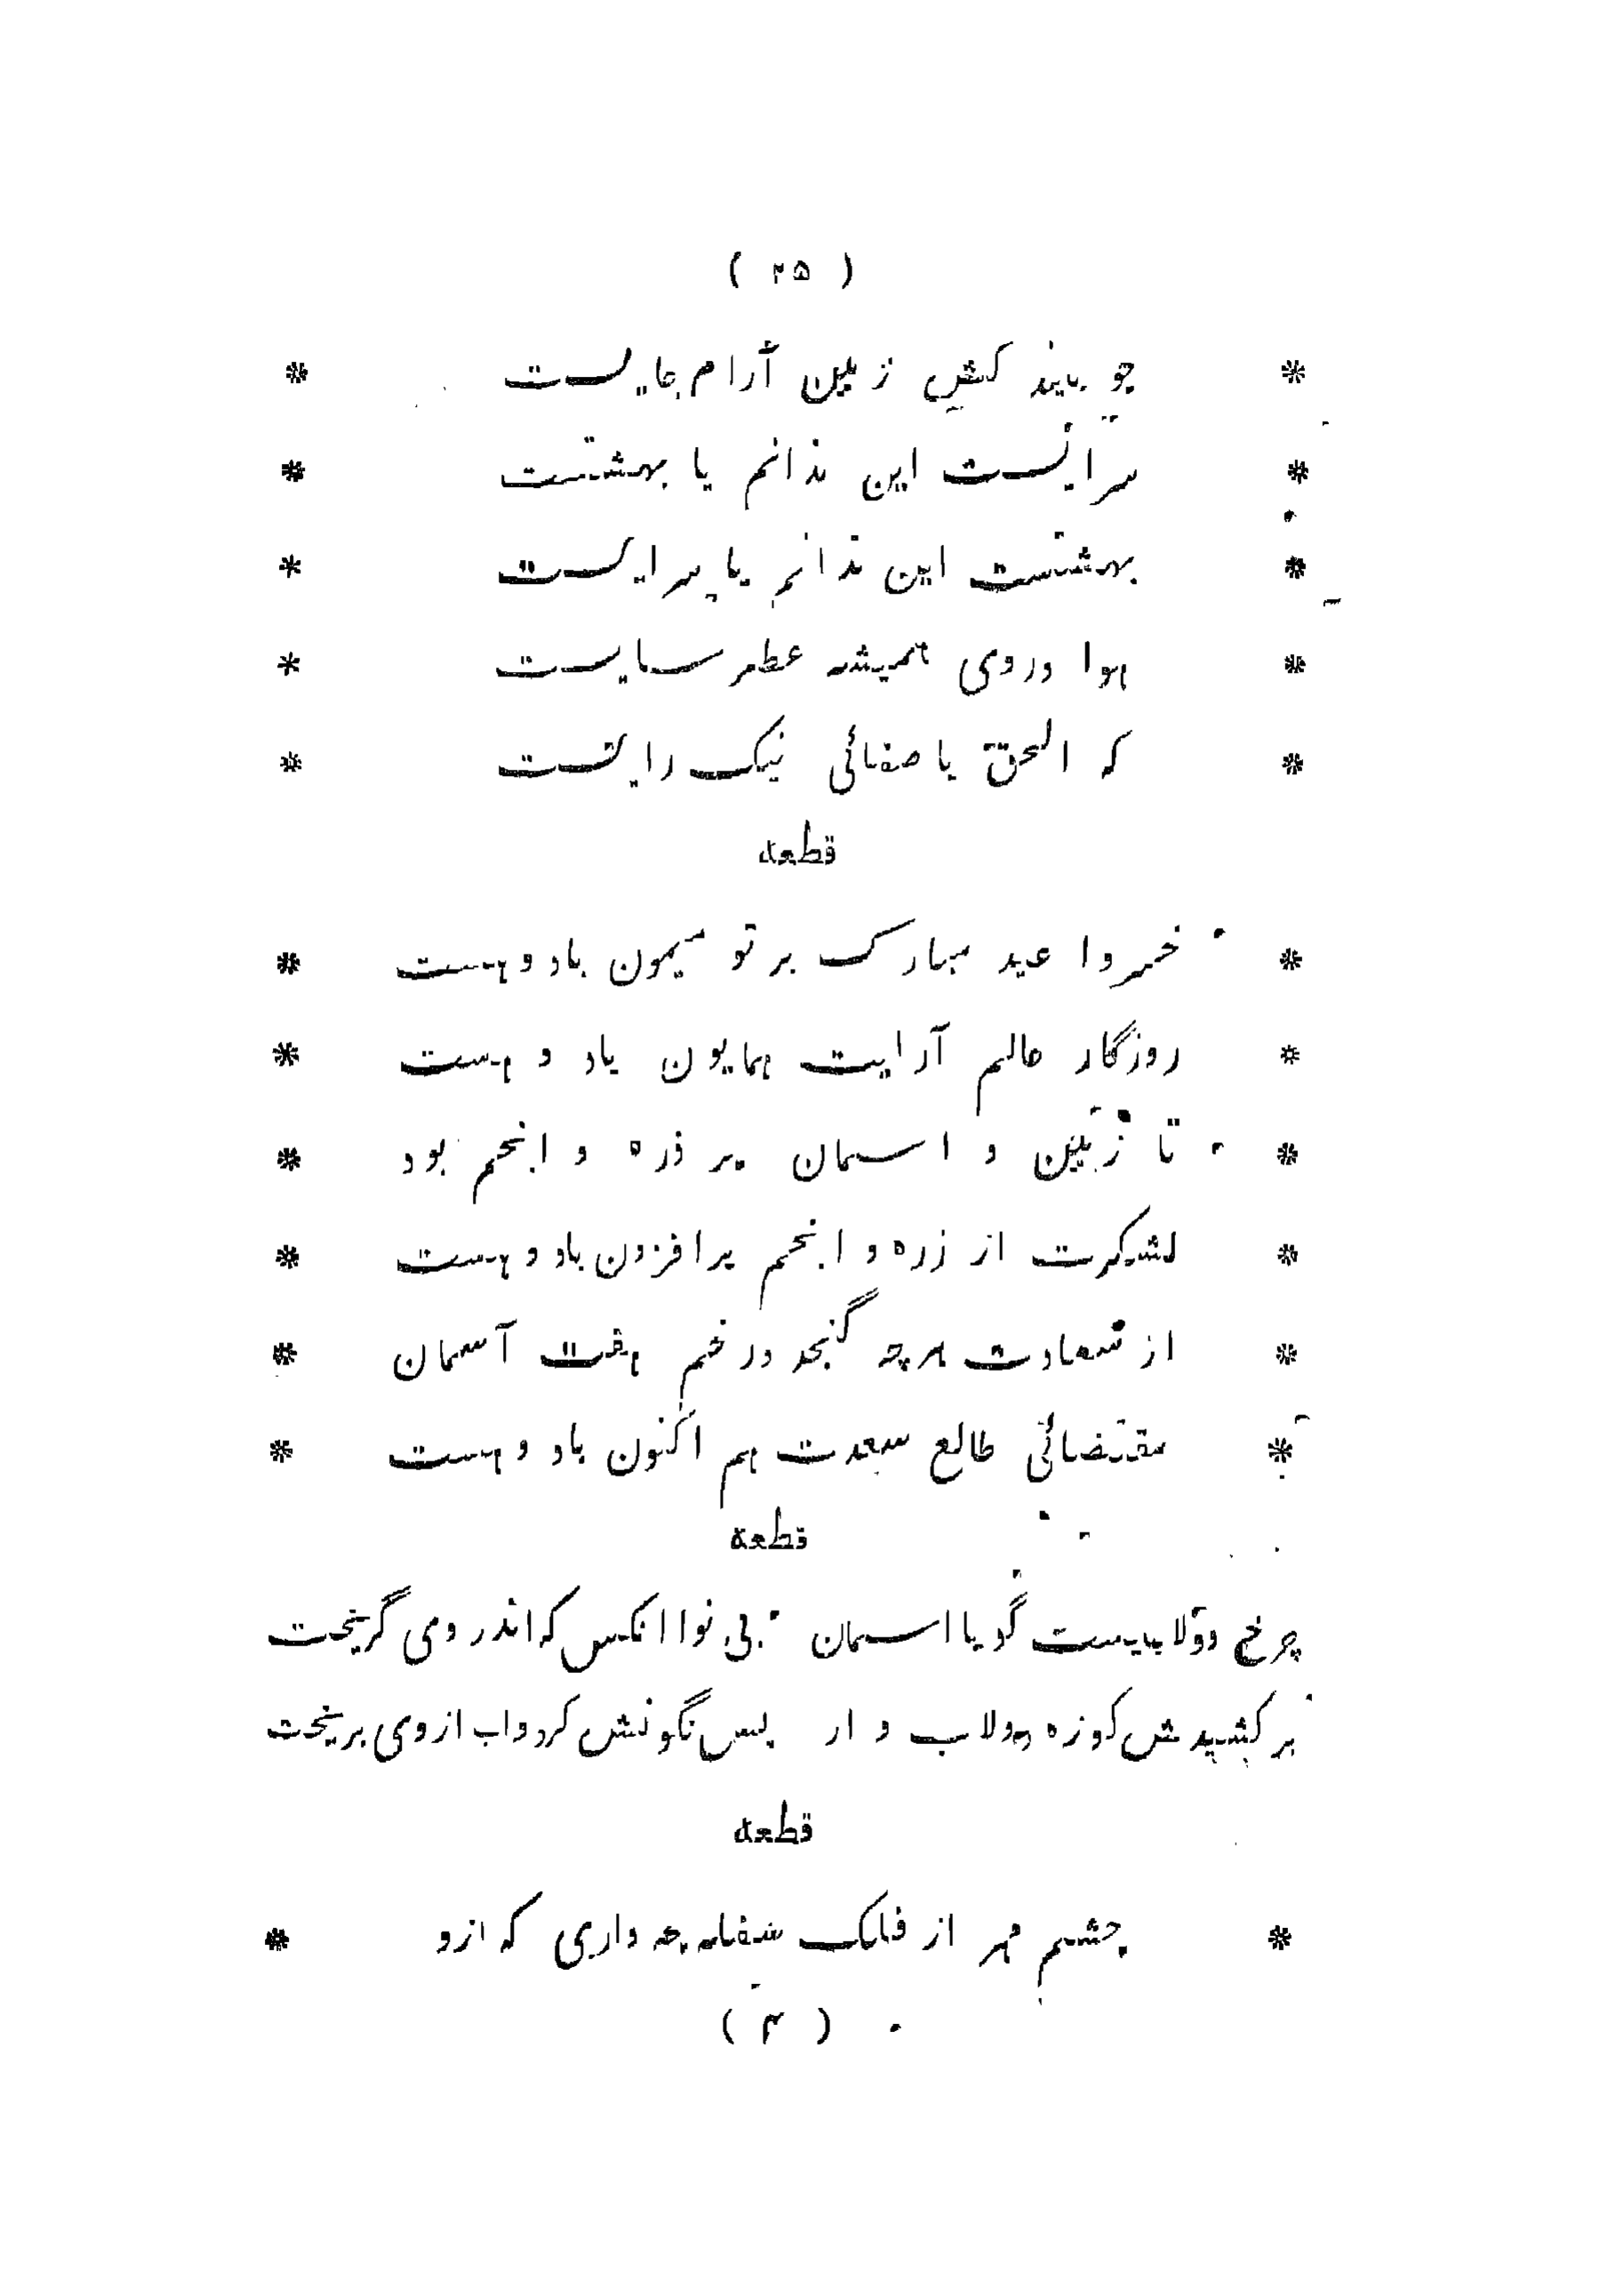 ( ۲۵ )
* چو بیند کش زمین آرام جایست *
* سرایست این ندانم یا بهشتست *
* بهشتست این ندانم یا سرایست *
* هوا در وی همیشه عطر سایست *
* که الحق با صفائی نیک رایست *
قطعه
* خسروا عید مبارک بر تو میمون باد و هست *
* روزگار عالم آرایت همایون باد و هست *
* تا زمین و اسمان پر ذره و انجم بود *
* لشکرت از زره و انجم بر افزون باد و هست *
* از سعادت هرچه گنجد در خم هفت آسمان *
* مقتضائی طالع سعدت هم اکنون باد و هست *
قطعة
چرخ دولابیست گویا اسمان بی نوا انکس که اندر وی گریخت
بر کشیدش کوزه دولاب وار پس نگونش کرد واب از وی بریخت
قطعه
* چشم مهر از فلک سفله چه داری که ازو *
( ۴ )